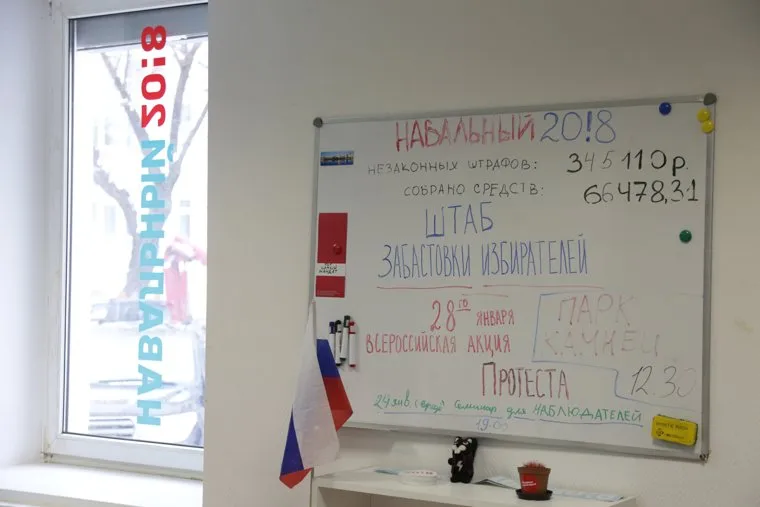 НАВАЛЬНЫЙ 20!8
НАВАЛЬНЫЙ 20!8
НЕЗАКОННЫХ ШТРАФОВ: 345110р.
СОБРАНО СРЕДСТВ: 66478,31
ШТАБ
ЗАБАСТОВКИ ИЗБИРАТЕЛЕЙ
28го ЯНВАРЯ
ВСЕРОССИЙСКАЯ АКЦИЯ
ПРОТЕСТА
ПАРК
12.30
24 янв. (среда) Семинар для НАБЛЮДАТЕЛЕЙ
19.00